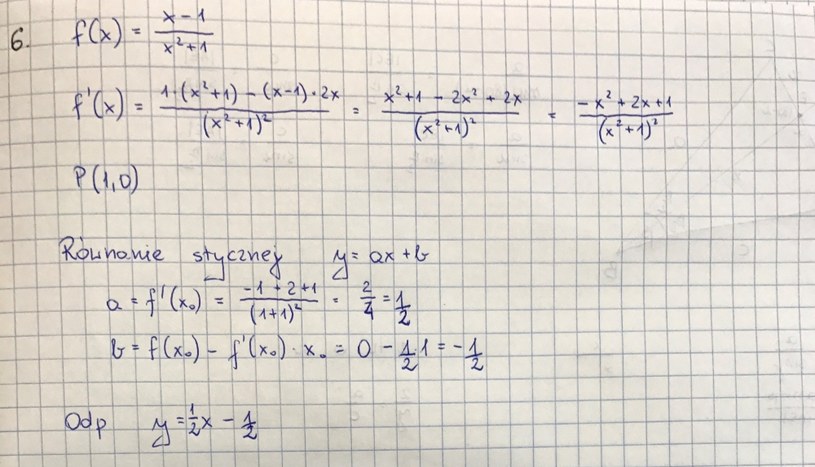 6. f(x) = (x-1)/(x²+1)
f'(x) = (1·(x²+1) - (x-1)·2x)/(x²+1)² = (x²+1 - 2x² + 2x)/(x²+1)² = (-x² + 2x + 1)/(x²+1)²
P(1,0)
Równanie stycznej y = ax + b
a = f'(x₀) = (-1 + 2 + 1)/(1+1)² = 2/4 = 1/2
b = f(x₀) - f'(x₀) · x₀ = 0 - 1/2·1 = -1/2
Odp y = 1/2x - 1/2